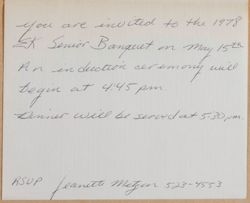 you are invited to the 1978
ΣK Senior Banquet on May 15th
An induction ceremony will
begin at 4:45 pm.
Dinner will be served at 5:30 pm.
RSUP Jeanette 523-4553